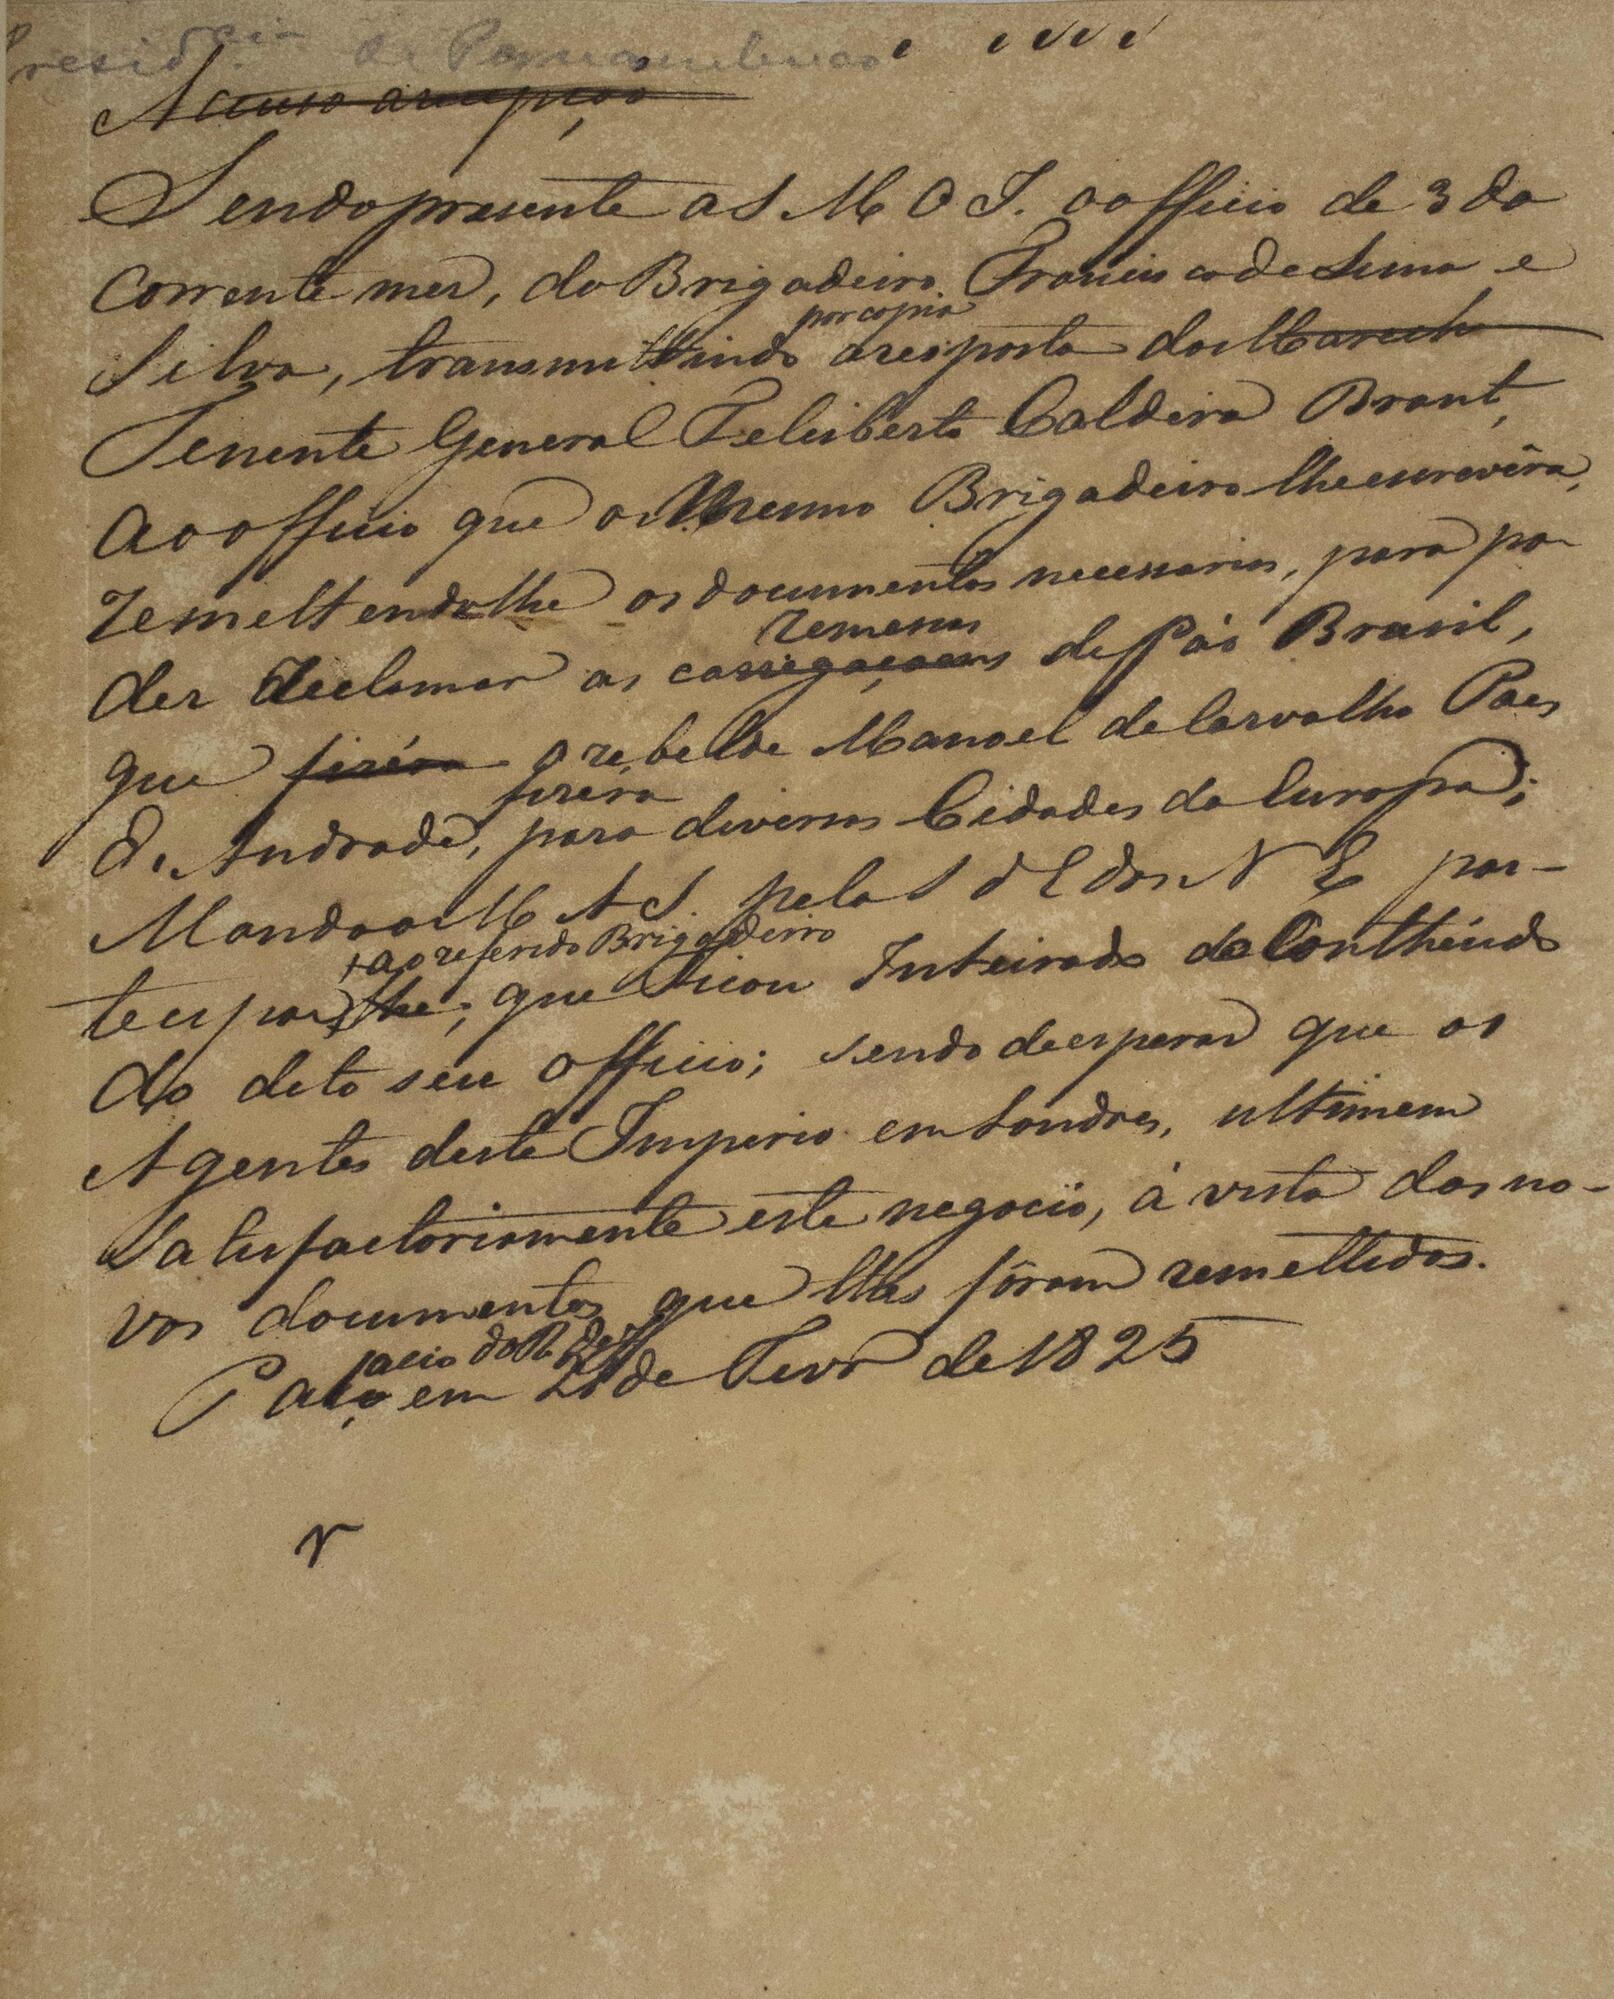 Presid.cia de Pernambuco
Accuso a recepção
Sendo presente a S M O I. o officio de 3 do
corrente mez, do Brigadeiro Francisco de Lima e
por copia
Silva, transmittindo a resposta do Marech
Tenente General Felisberto Caldeira Brant,
ao officio que o Mesmo Brigadeiro lhe escrevêra,
remettendolhe os documentos necessarios, para po-
remessas
der declamar as carregaçoens de Páo Brasil,
que fizéra o rebelde Manoel de Carvalho Paes
fizéra
d'Andrade, para diversas Cidades da Europa;
Manda o M A S. pela S d E dos N E par-
+ ao referido Brigadeiro
tecipar lhe, que Ficou Inteirado do Conthéudo
do dito seu officio; sendo de esperar que os
Agentes deste Imperio em Londres, ultimem
satisfactoriamente este negocio, á vista dos no-
vos documentos que lhes fôram remettidos.
lacio do R de J
Paço em 21 de Fevr de 1825